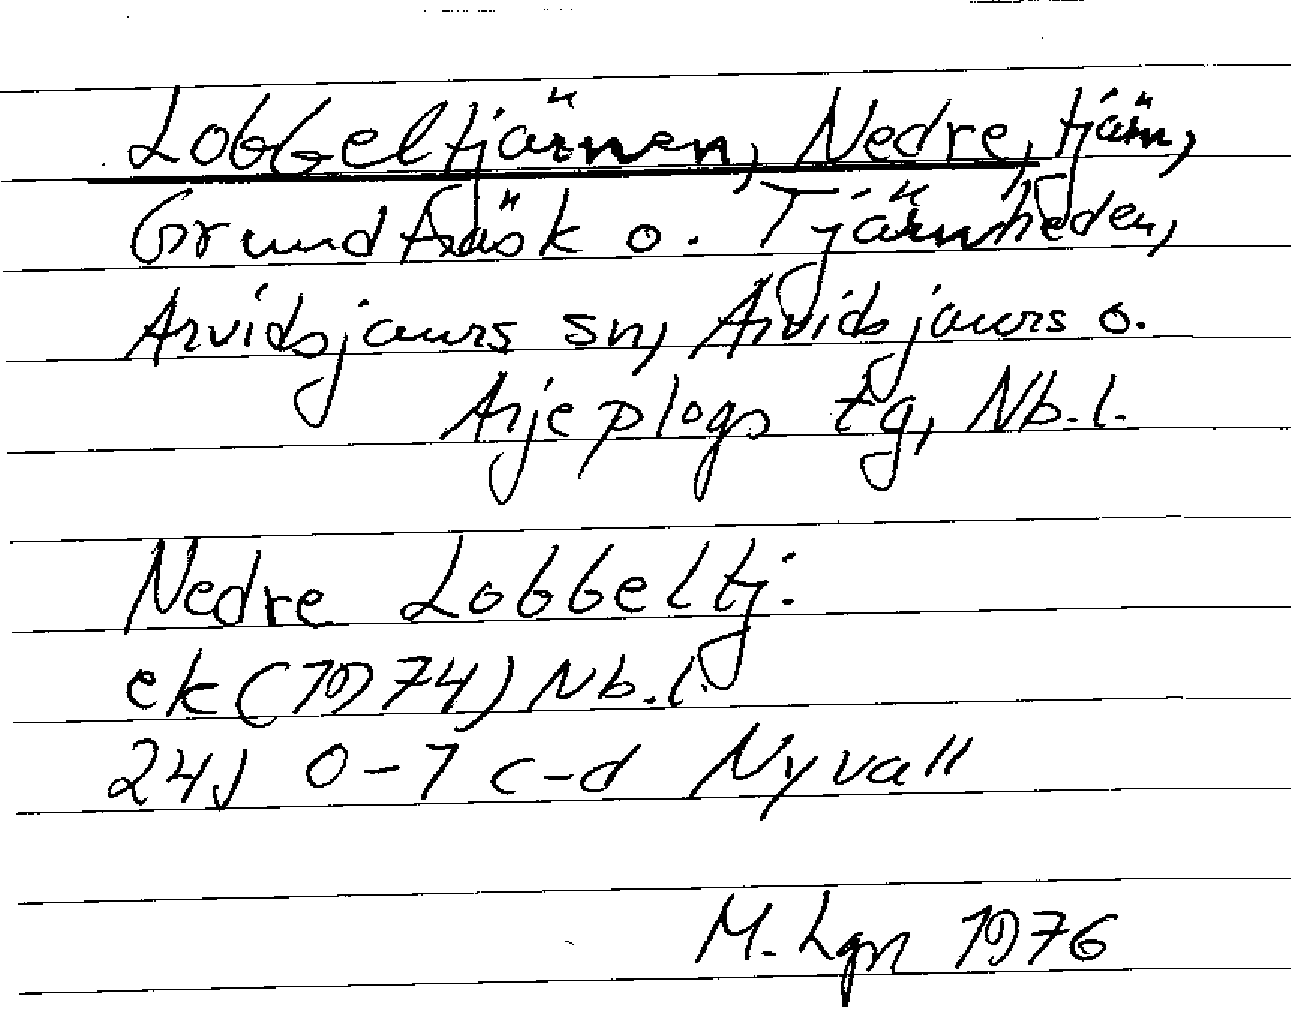 Lobbeltjärnen, Nedre, tjärn,
Grundträsk o. Tjärnheden,
Arvidsjaurs sn, Arvidsjaurs o.
Arjeplogs tg, Nb.l.
Nedre Lobbeltj.
ek (1974) Nb.l.
24J 0-1 c-d Nyvall
M. Lgn 1976